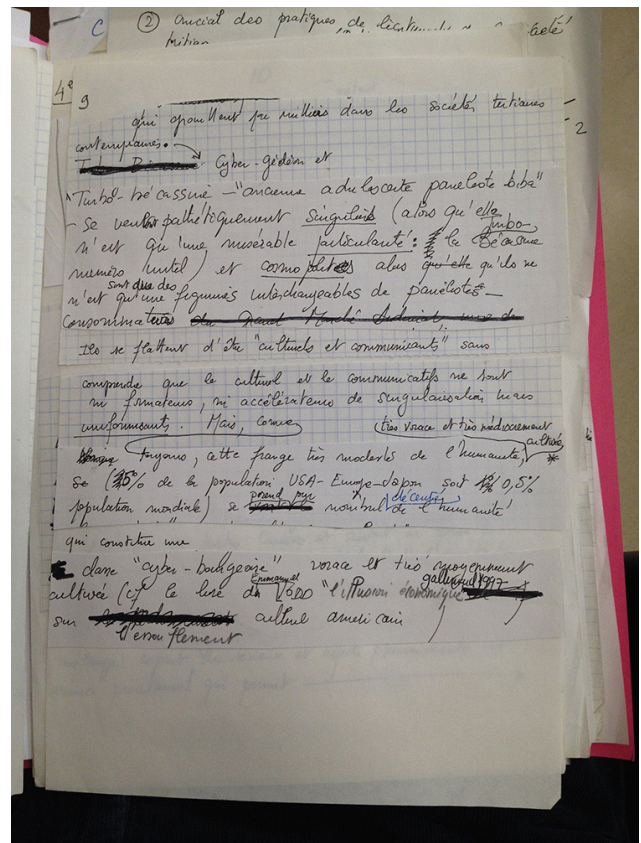 C ② crucial des pratiques de
4e
9
qui grouillent par milliers dans les sociétés tertiaires
2
contemporaines. Cyber-gédéon et
"Turbo-bécassine - "ancienne adulescente panéliste biba"
- Se veulent pathétiquement singuliers (alors qu'elle
n'est qu'une misérable particularité : la Turbo Bécassine
numéro untel) et cosmopolites alors qu'elle qu'ils ne
n'est sont que des qu'une figurines interchangeables de panélistes -
consommateurs du Grand Marché
Ils se flattent d'être "culturels et communicants" sans
comprendre que le culturel et le communicatif ne sont
ni formateurs, ni accélérateurs de singularisation mais
uniformisants. Mais, comme
(très vorace et très médiocrement cultivée *
Tryons, cette frange très modeste de l'humanité,
se (5% de la population USA-Europe-Japon soit 0,5%
population mondiale) se prend pour nombril décentré de l'humanité
qui constitue une
classe "cyber-bourgeoise" vorace et très moyennement
cultivée (cf le livre de Emmanuel Todd "l'illusion économique" gallimard 1997
sur culturel américain
l'essoufflement